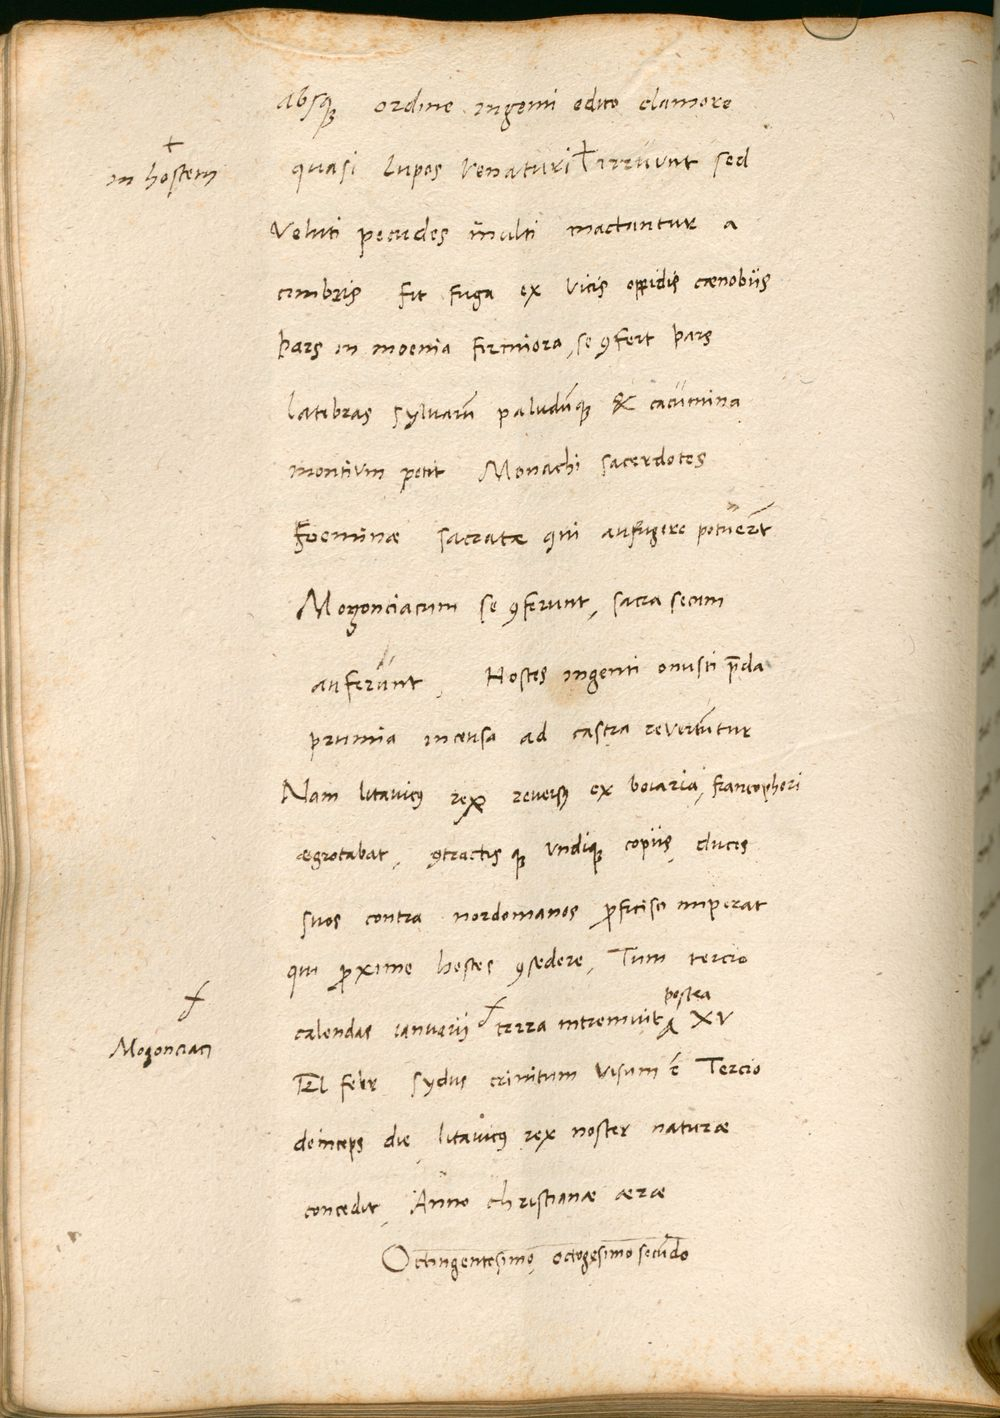 absq; ordine ingenti edito clamore
in hostem
quasi lupos venaturi † irruunt sed
Veluti pecudes multi mactantur a
cimbris fit fuga ex vicis oppidis cœnobiis
pars in moenia firmiora, se ꝯfert pars
latebras sylvarū paludūq; & cacumina
montium petit Monachi sacerdotes
Foeminæ sacratæ qui aufugere potuert̄
Mogonciacum se ꝯferunt, sacra secum
auferunt, Hostes ingenti onusti p̄da
prumia incensa ad castra revertūtur
Nam litavicꝰ rex reversꝰ ex boiaria, francophori
ægrotabat, ꝯtractis q; undiq; copiis, duces
suos contra nordomanos ꝓficisci imperat
qui ꝓxime hostes ꝯsedere, Tum tercio
calendas ianuarii † terra intremuit postea XV
Mogonciaci
Kl febr sydus crinitum visum ē Tercio
deinceps die litavicꝰ rex noster naturæ
concedit, Anno christianæ æræ
Octingentesimo, octogesimo secūdo